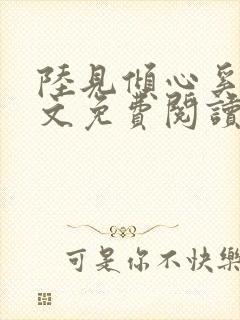 陸見傾心
文免費閱讀
可是你不快樂